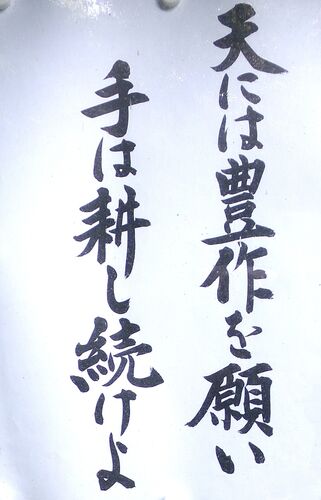 天には豊作を願い
手は耕し続けよ